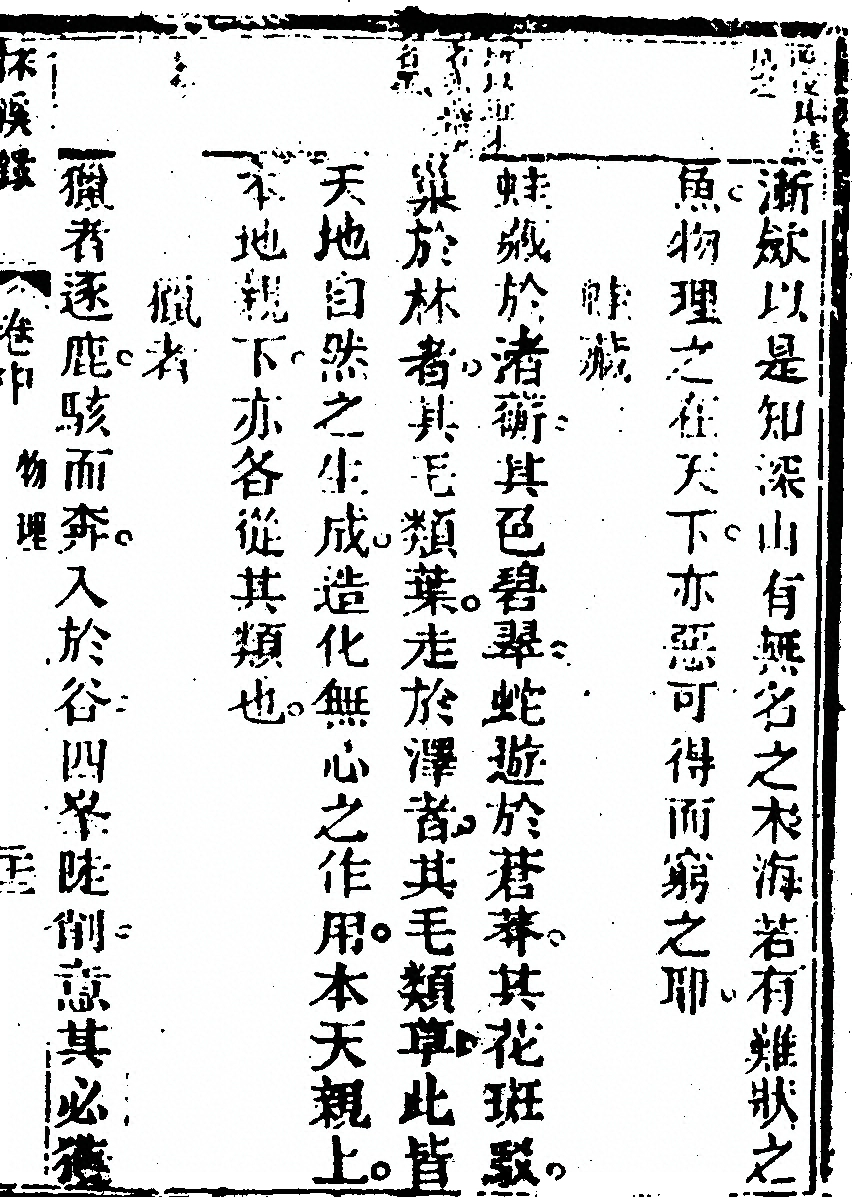 漸歛以是知深山有無名之木海若有難狀之
魚物理之在天下亦惡可得而窮之耶
蛙藏
蛙藏於渚蘅其色碧翠蛇遊於蒼莽其花斑駁
巢於林者其毛類葉走於澤者其毛類草此皆
天地自然之生成造化無心之作用本天親上
本地親下亦各從其類也
獵者
獵者逐鹿駭而奔入於谷四峯陡削意其必獲
林溪錄
卷中
物理